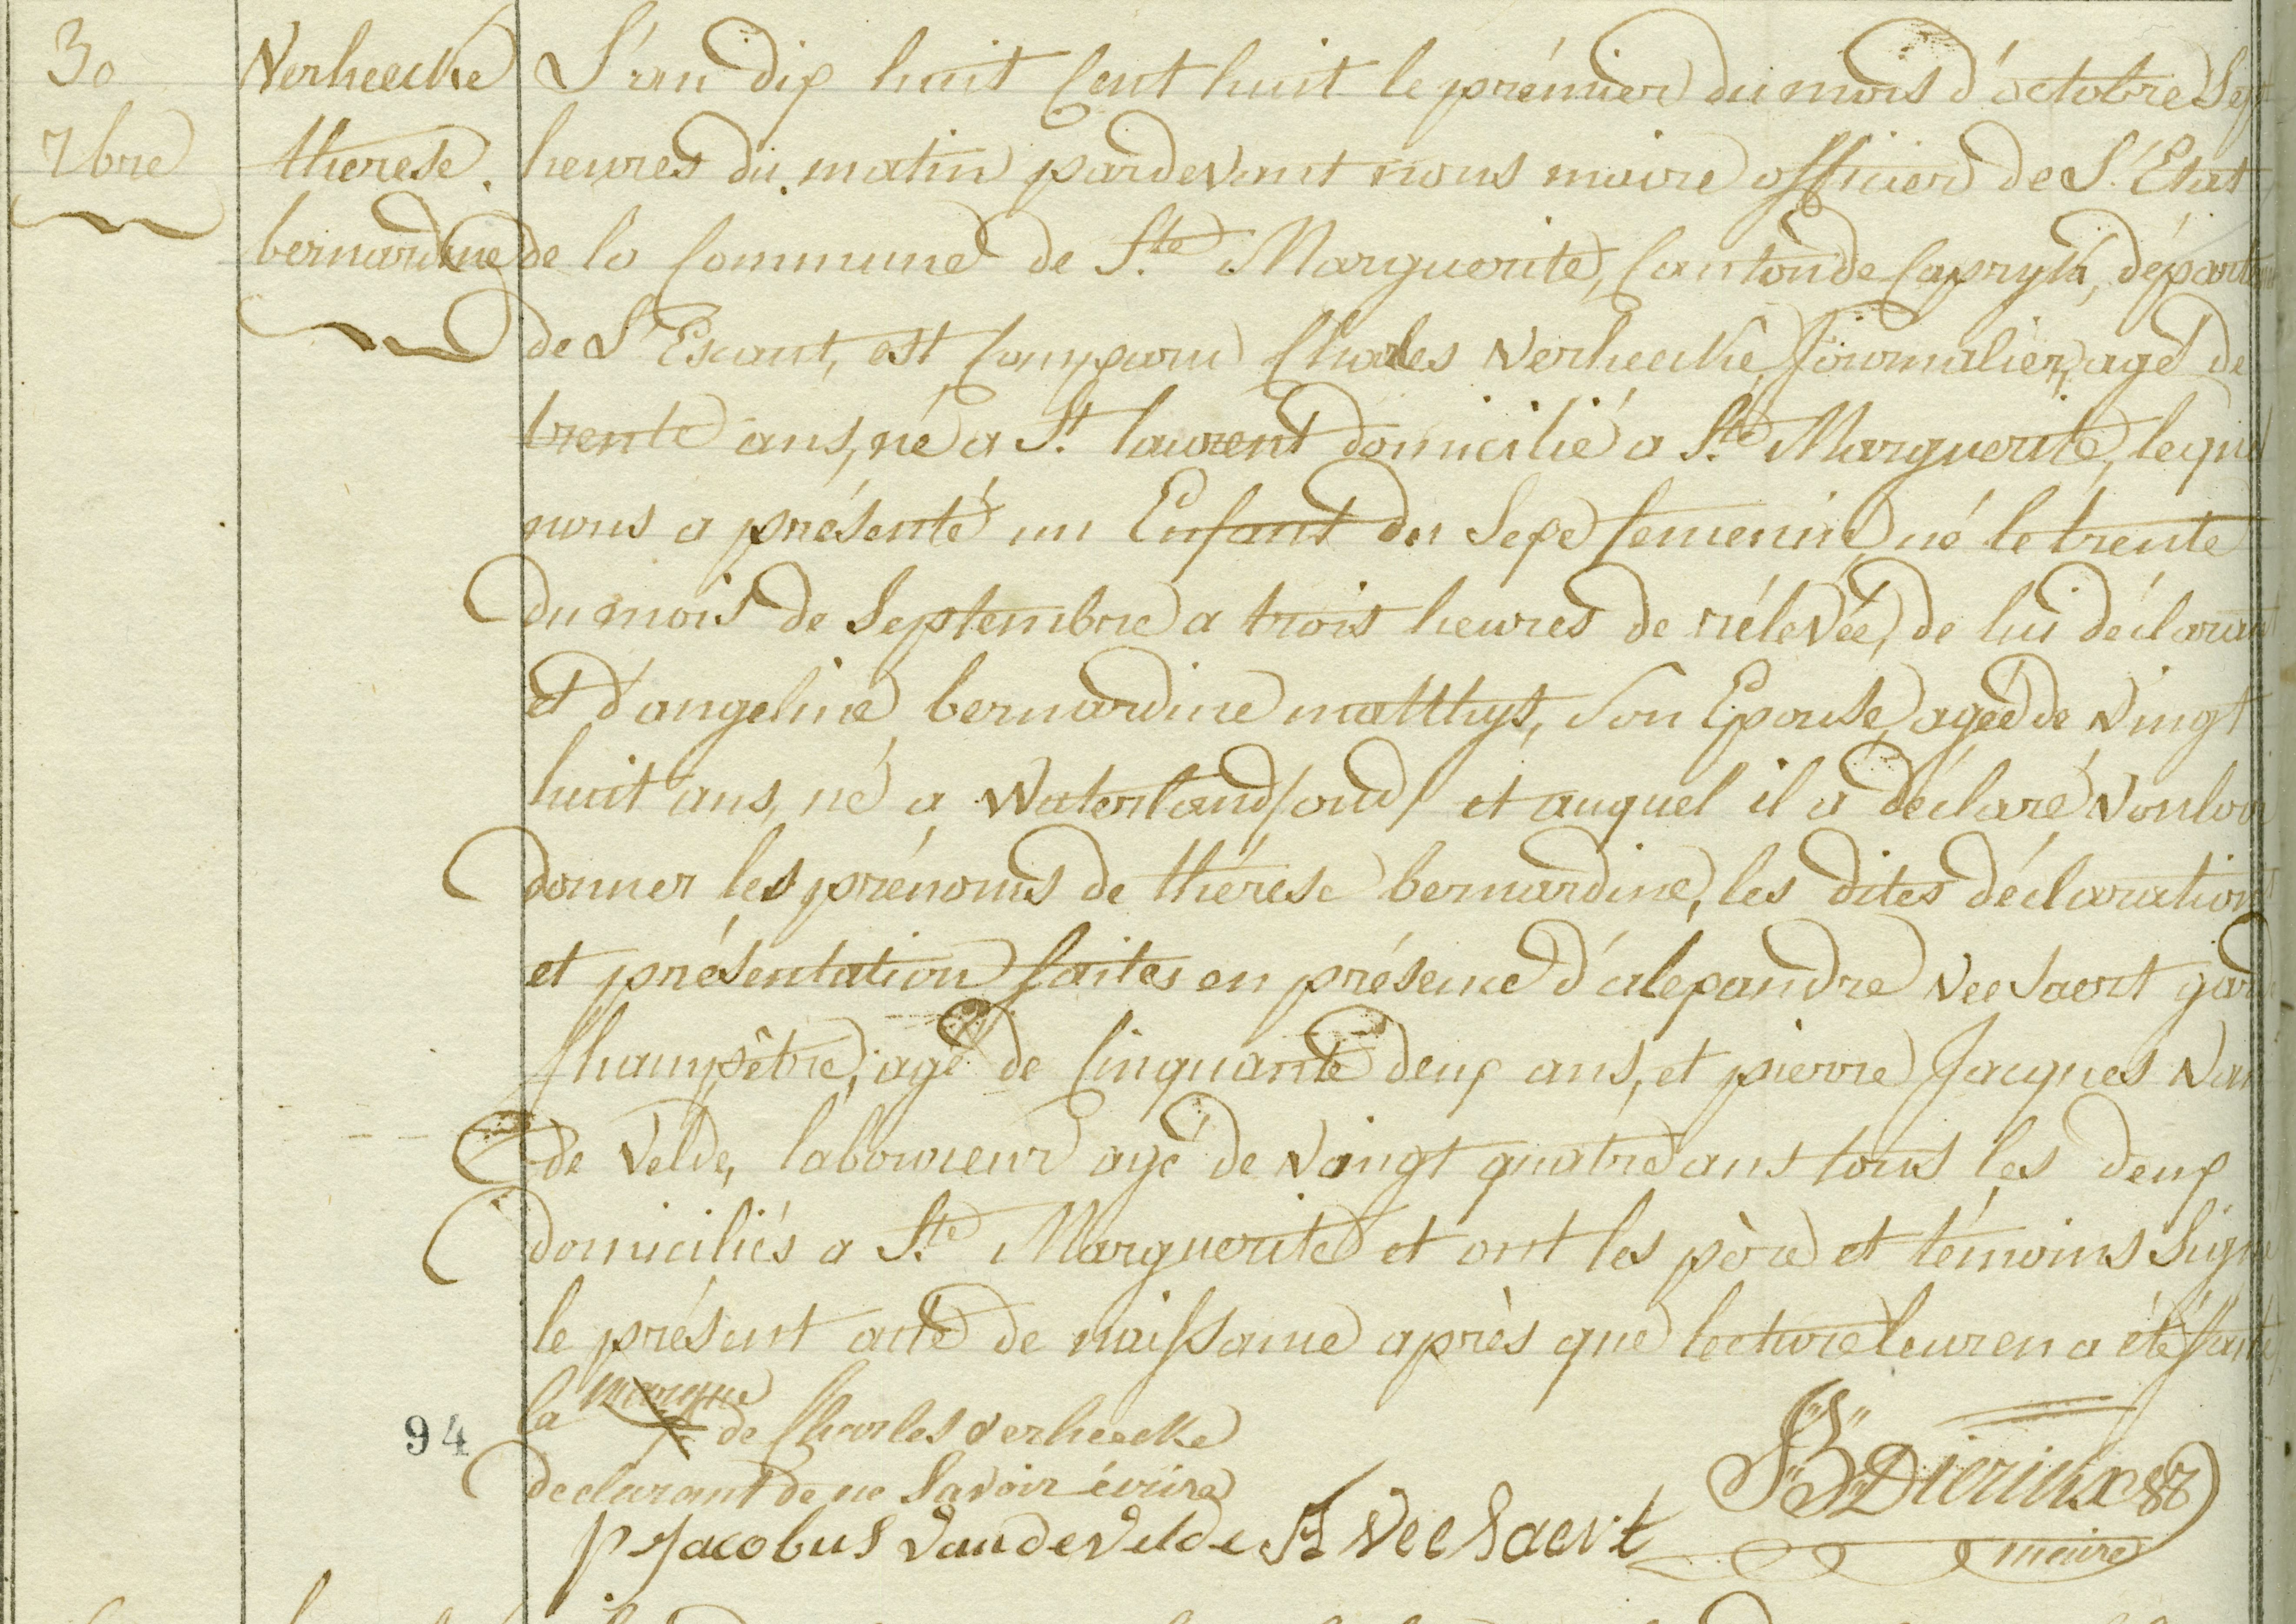 30
7bre
Verheecke
therese.
bernardine
L'an dix huit Cent huit le prémier du mois d'octobre Sept
heures du matin pardevant nous maire officier de L'Etat
de la Commune de Ste Marguerite, Canton de Capryk, départem
de L'Escaut, est Comparu Charles Verheecke Journalier, agé de
trente ans, né a St laurent domicilié a Ste Marguerite, lequel
nous a présenté un Enfant du Sexe femenin né le trente
du mois de Septembre a trois heures de rélevée, de lui déclarant
et d'angeline bernardine matthys, Son Epouse, agée de Vingt
huit ans, né a Waterland/oud/ et auquel il a déclaré Vouloir
donner les prénoms de thérese bernardine, les dites déclaration
et présentation faites en présence d'alexandre Veesaert garde
Champêtre, agé de Cinquante deux ans, et pierre Jacques Van
de Velde, laboureur agé de Vingt quatre ans tous les deux
domiciliés a Ste Marguerite et ont les père et témoins Signé
le présent acte de naissance après que lecture leur en a été faite
la marque de Charles verheecke
declarant de ne Savoir écrire
94
P Jacobus Van de Velde A Veesaert
JB Dierickx
maire